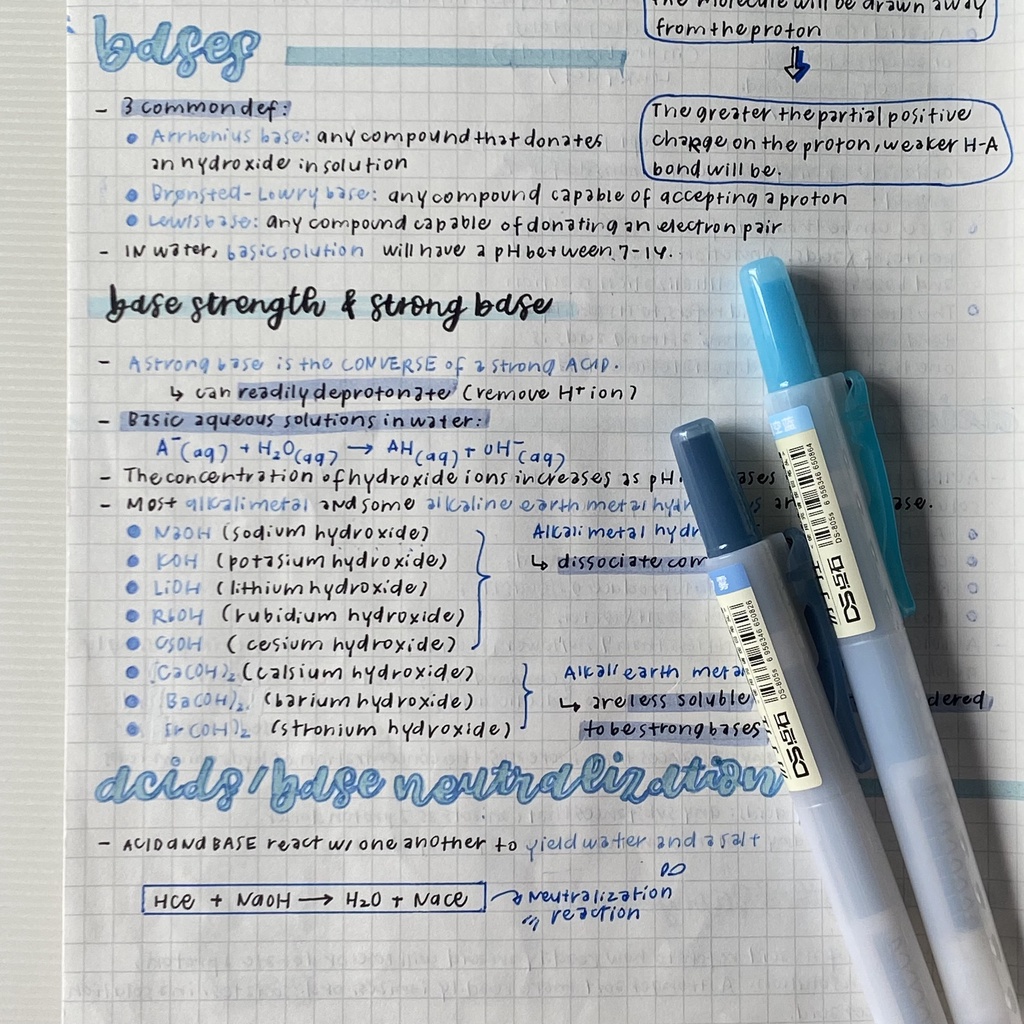 the molecule will be drawn away
from the proton
The greater the partial positive
charge on the proton, weaker H-A
bond will be.
bases
- 3 common def:
Arrhenius base: any compound that donates
an hydroxide in solution
Brønsted-Lowry base: any compound capable of accepting a proton
Lewis base: any compound capable of donating an electron pair
- IN water, basic solution will have a pH between 7-14.
base strength & strong base
- A strong base is the CONVERSE of a strong ACID.
↳ can readily deprotonate (remove H⁺ ion)
- Basic aqueous solutions in water:
A⁻(aq) + H₂O(aq) → AH(aq) + OH⁻(aq)
- The concentration of hydroxide ions increases as pH
- Most alkali metal and some alkaline earth metal
NaOH (sodium hydroxide)
KOH (potasium hydroxide)
LiOH (lithium hydroxide)
RbOH (rubidium hydroxide)
CsOH (cesium hydroxide)
Alkali metal
↳ dissociate
Ca(OH)₂ (calsium hydroxide)
Ba(OH)₂ (barium hydroxide)
Sr(OH)₂ (stronium hydroxide)
Alkali earth
↳ are less soluble
to be strong bases
acids/base neutralization
- ACID and BASE react w/ one another to yield water and a salt
HCl + NaOH → H₂O + NaCl
Neutralization
reaction
DS-805s 6 956346 650864
DS-805s 6 956346 650826